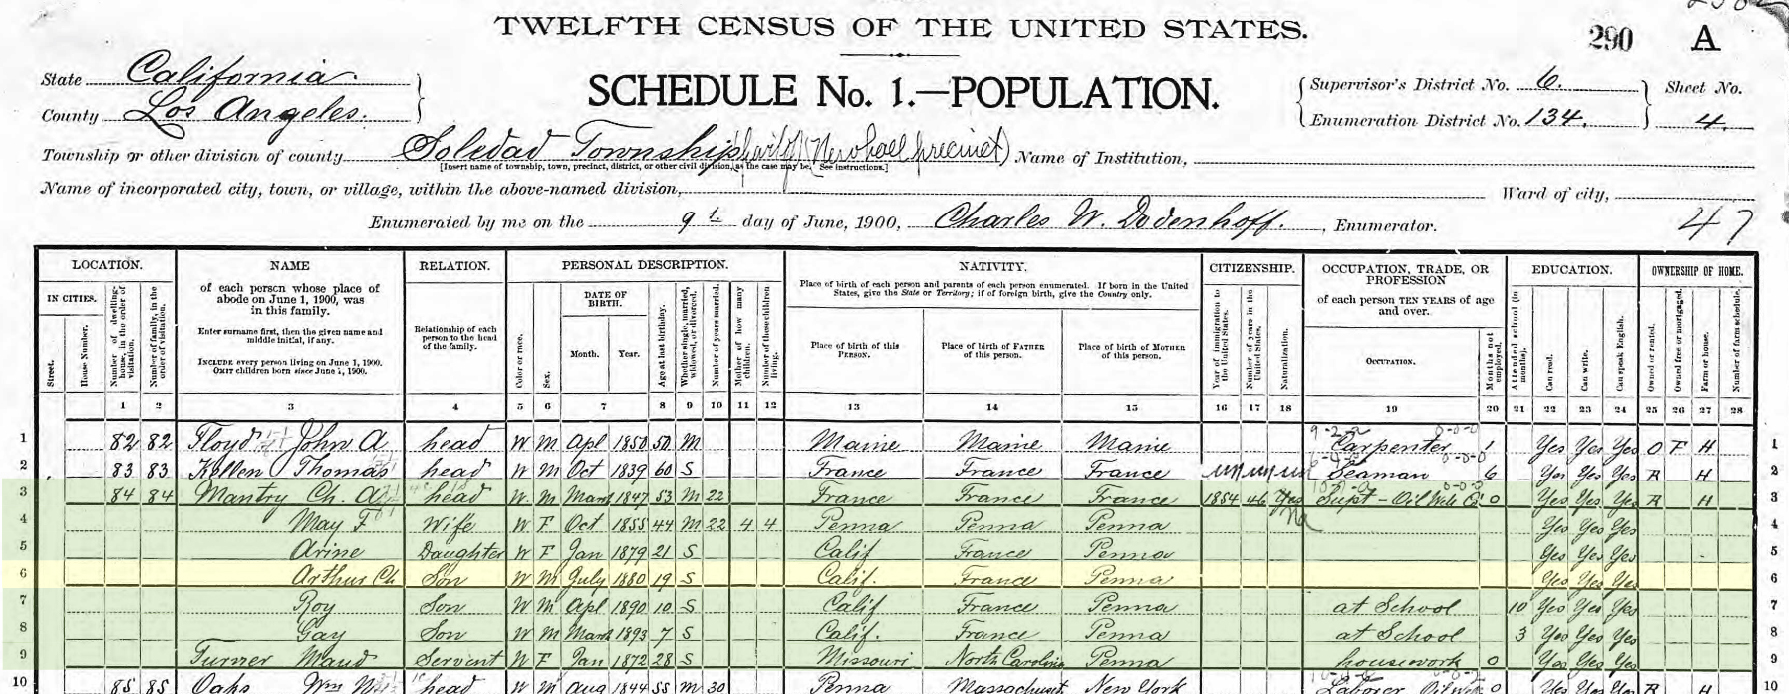 TWELFTH CENSUS OF THE UNITED STATES.
290 A
State California.
County Los Angeles.
SCHEDULE No. 1.—POPULATION.
Supervisor's District No. 6.
Enumeration District No. 134.
Sheet No.
4.
Township or other division of county Soledad Township (part of) (Newhall precinct) Name of Institution,
[Insert name of township, town, precinct, district, or other civil division, as the case may be. See instructions.]
Name of incorporated city, town, or village, within the above-named division, Ward of city,
Enumerated by me on the 9th day of June, 1900, Charles W. Dodenhoff. , Enumerator.
47
LOCATION. NAME RELATION. PERSONAL DESCRIPTION. NATIVITY. CITIZENSHIP. OCCUPATION, TRADE, OR PROFESSION EDUCATION. OWNERSHIP OF HOME.
IN CITIES.
Street.
House Number.
Number of dwelling-house, in the order of visitation.
Number of family, in the order of visitation.
of each person whose place of abode on June 1, 1900, was in this family.
Enter surname first, then the given name and middle initial, if any.
INCLUDE every person living on June 1, 1900.
OMIT children born since June 1, 1900.
Relationship of each person to the head of the family.
Color or race.
Sex.
DATE OF BIRTH.
Month. Year.
Age at last birthday.
Whether single, married, widowed, or divorced.
Number of years married.
Mother of how many children.
Number of these children living.
Place of birth of each person and parents of each person enumerated. If born in the United States, give the State or Territory; if of foreign birth, give the Country only.
Place of birth of this PERSON.
Place of birth of FATHER of this person.
Place of birth of MOTHER of this person.
Year of immigration to the United States.
Number of years in the United States.
Naturalization.
of each person TEN YEARS of age and over.
OCCUPATION.
Months not employed.
Attended school (in months).
Can read.
Can write.
Can speak English.
Owned or rented.
Owned free or mortgaged.
Farm or house.
Number of farm schedule.
1 2 3 4 5 6 7 8 9 10 11 12 13 14 15 16 17 18 19 20 21 22 23 24 25 26 27 28
1 82 82 Floyd John A. head W M Apl 1850 50 M Maine Maine Maine Carpenter 1 Yes Yes Yes O F H 1
2 83 83 Thomas head W M Oct 1839 60 S France France France un un un Seaman 6 Yes Yes Yes R H 2
3 84 84 Mantry Ch. A. head W M Mar 1847 53 M 22 France France France 1854 46 Supt - Oil Wells 0 Yes Yes Yes R H 3
4 May F Wife W F Oct 1855 44 M 22 4 4 Penna Penna Penna Yes Yes Yes 4
5 Arine Daughter W F Jan 1879 21 S Calif France Penna Yes Yes Yes 5
6 Arthur Ch Son W M July 1880 19 S Calif. France Penna Yes Yes Yes 6
7 Roy Son W M Apl 1890 10 S Calif France Penna at School 10 Yes Yes Yes 7
8 Gay Son W M Mar 1893 7 S Calif. France Penna at School 3 Yes Yes Yes 8
9 Turner Maud Servant W F Jan 1872 28 S Missouri North Carolina Penna housework 0 Yes Yes Yes 9
10 85 85 Oaks Wm head W M Aug 1844 55 M 30 Penna Massachust New York Laborer Oil Wells 0 Yes Yes Yes R H 10